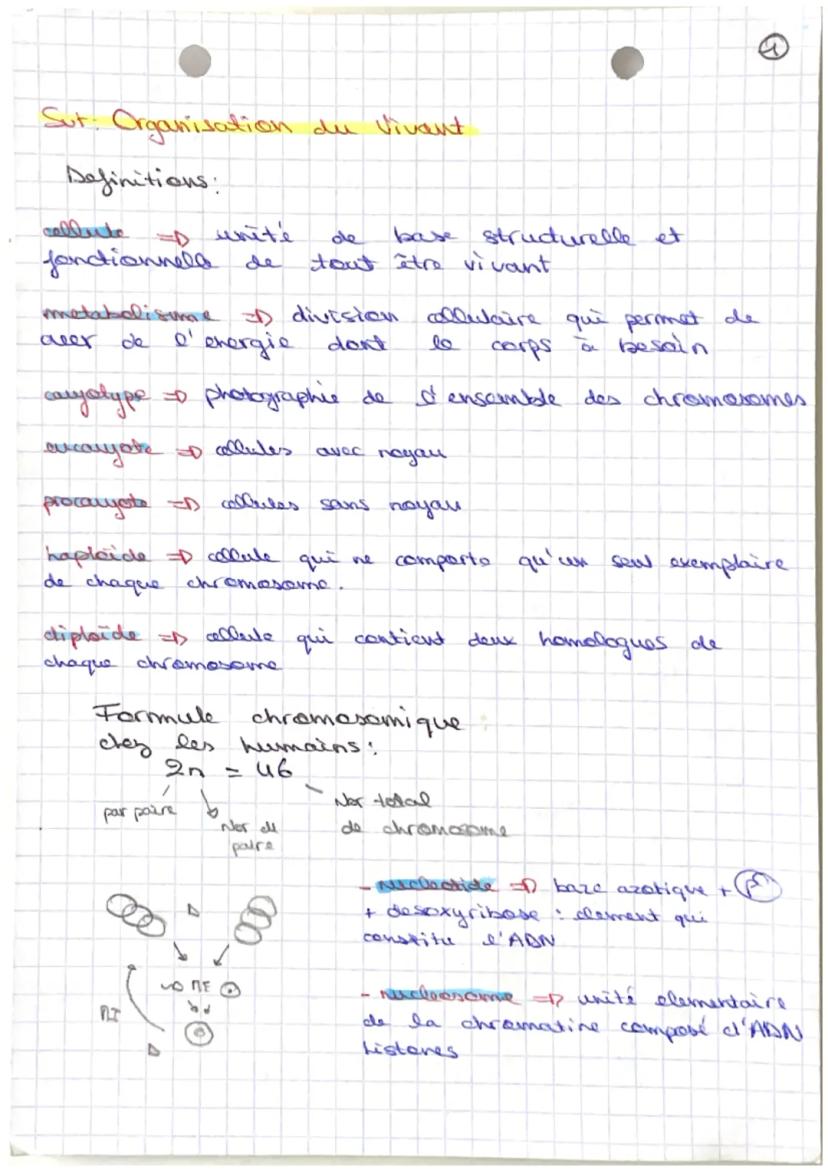 1
Svt: Organisation du Vivant
Definitions:
cellule => unité de base structurelle et
fonctionnelle de tout être vivant
metabolisme => division cellulaire qui permet de
créer de l'energie dont le corps à besoin
caryotype => photographie de l'ensemble des chromosomes
eucaryote => cellules avec noyau
procaryote => cellules sans noyau
haploïde => cellule qui ne comporte qu'un seul exemplaire
de chaque chromosome.
diploïde => cellule qui contient deux homologues de
chaque chromosome
Formule chromosomique
chez les humains:
2n = 46
par paire
Nbr de
paire
Nbr total
de chromosome
- nucleotide => baze azotique +
+ desoxyribose : element qui
constitu l'ADN
ME
MI
- nucleosome => unité elementaire
de la chromatine composé d'ADN
histones